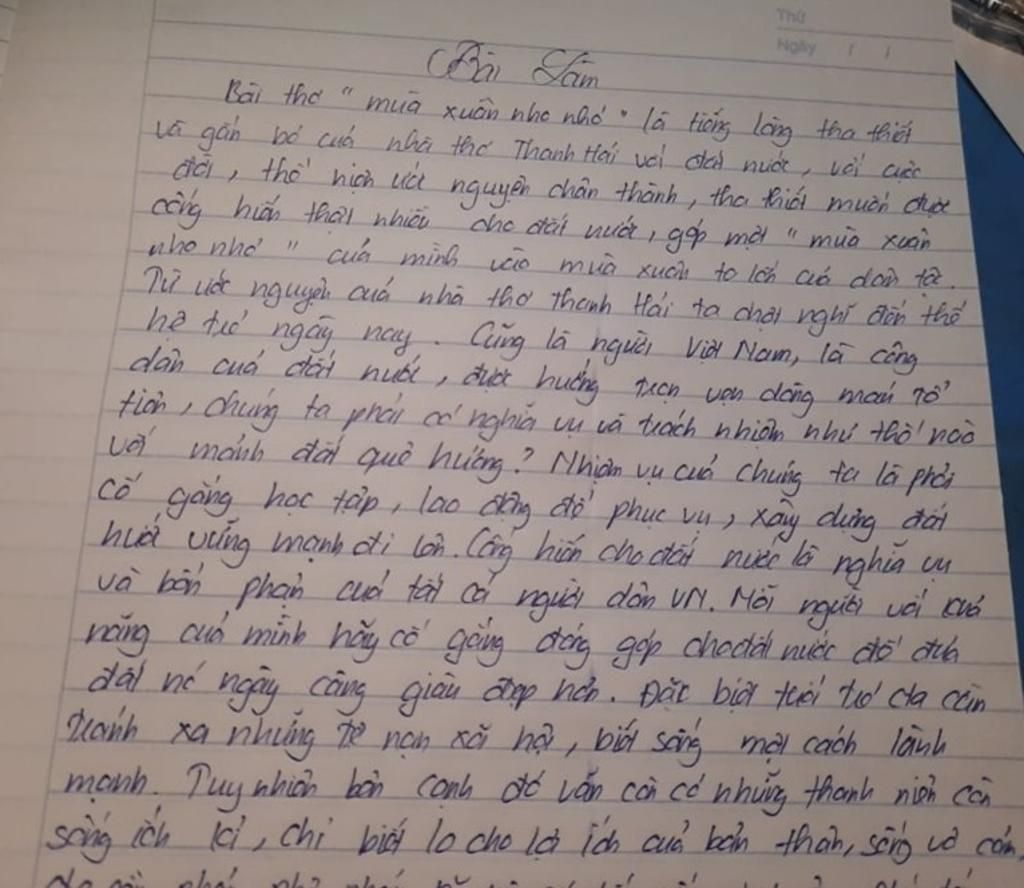 Thứ
Ngày / /
Bài Làm
Bài thơ " mùa xuân nho nhỏ " là tiếng lòng tha thiết
và gắn bó của nhà thơ Thanh Hải với đất nước, với cuộc
đời, thể hiện ước nguyện chân thành, tha thiết muốn được
cống hiến thật nhiều cho đất nước, góp một " mùa xuân
nho nhỏ " của mình vào mùa xuân to lớn của dân tộc.
Từ ước nguyện của nhà thơ Thanh Hải ta chợt nghĩ đến thế
hệ trẻ ngày nay. Cũng là người Việt Nam, là công
dân của đất nước, được hưởng trọn vẹn dòng máu Tổ
tiên, chúng ta phải có nghĩa vụ và trách nhiệm như thế nào
với mảnh đất quê hương? Nhiệm vụ của chúng ta là phải
cố gắng học tập, lao động để phục vụ, xây dựng đất
nước vững mạnh đi lên. Cống hiến cho đất nước là nghĩa vụ
và bổn phận của tất cả người dân VN. Mỗi người với khả
năng của mình hãy cố gắng đóng góp cho đất nước để đưa
đất nc ngày càng giàu đẹp hơn. Đặc biệt tuổi trẻ cta cần
tránh xa những tệ nạn xã hội, biết sống một cách lành
mạnh. Tuy nhiên bên cạnh đó vẫn còn có những thanh niên còn
sống ích kỉ, chỉ biết lo cho lợi ích của bản thân, sống vô cảm,